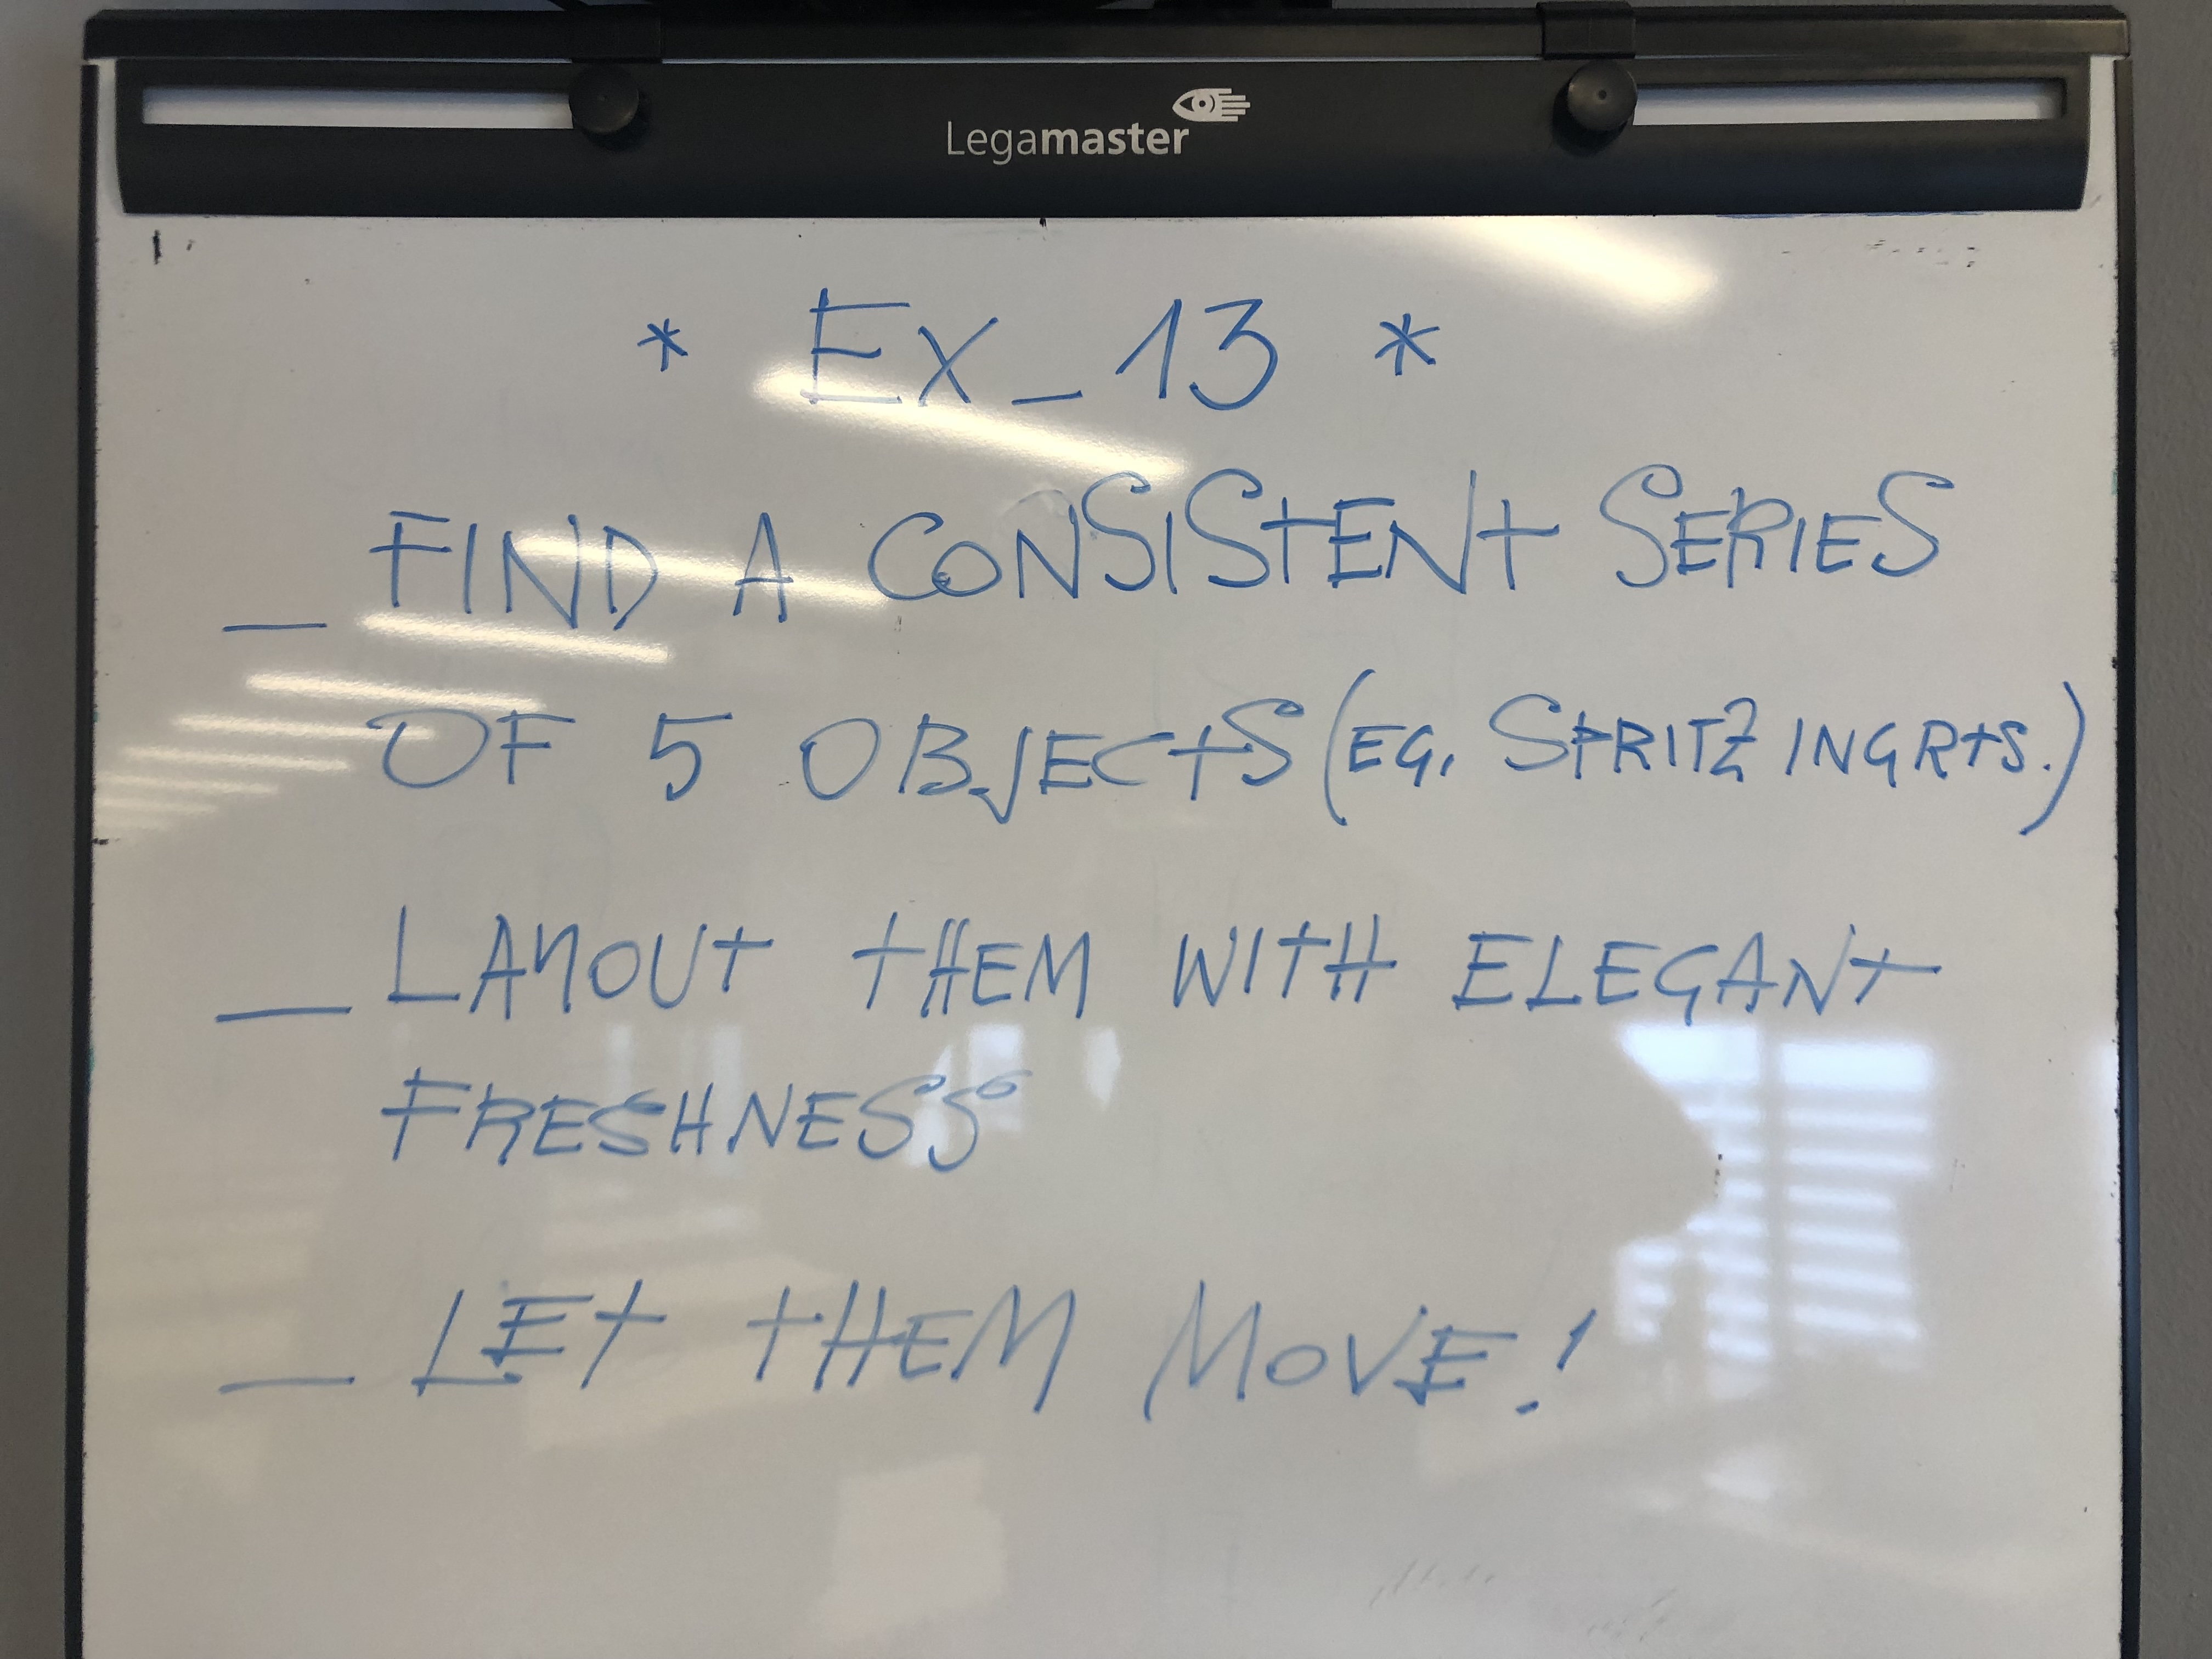 Legamaster
* Ex_13 *
_ FIND A CONSISTENT SERIES
OF 5 OBJECTS (EG. SPRITZ INGRTS.)
_ LAYOUT THEM WITH ELEGANT
FRESHNESS
_ LET THEM MOVE!